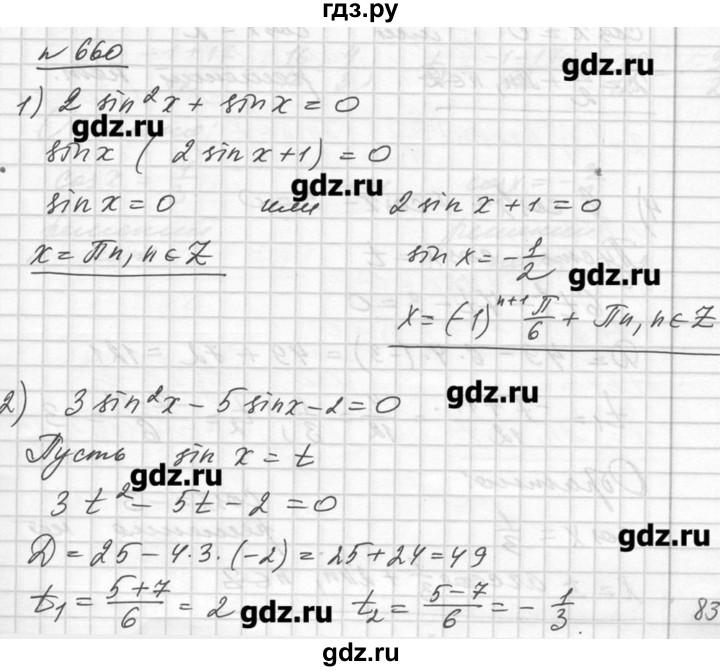 гдз.ру
n 660
gdz.ru
1) 2 sin²x + sin x = 0
gdz.ru
sin x ( 2 sin x + 1) = 0
gdz.ru
sin x = 0 или 2 sin x + 1 = 0
x = Пn, n ∈ Z sin x = -1/2
gdz.ru
x = (-1)^(n+1) П/6 + Пn, n ∈ Z
gdz.ru
2) 3 sin²x - 5 sin x - 2 = 0
Пусть sin x = t
gdz.ru
3t² - 5t - 2 = 0
gdz.ru
D = 25 - 4·3·(-2) = 25 + 24 = 49
t₁ = (5+7)/6 = 2 t₂ = (5-7)/6 = -1/3.
gdz.ru gdz.ru
83
gdz.ru